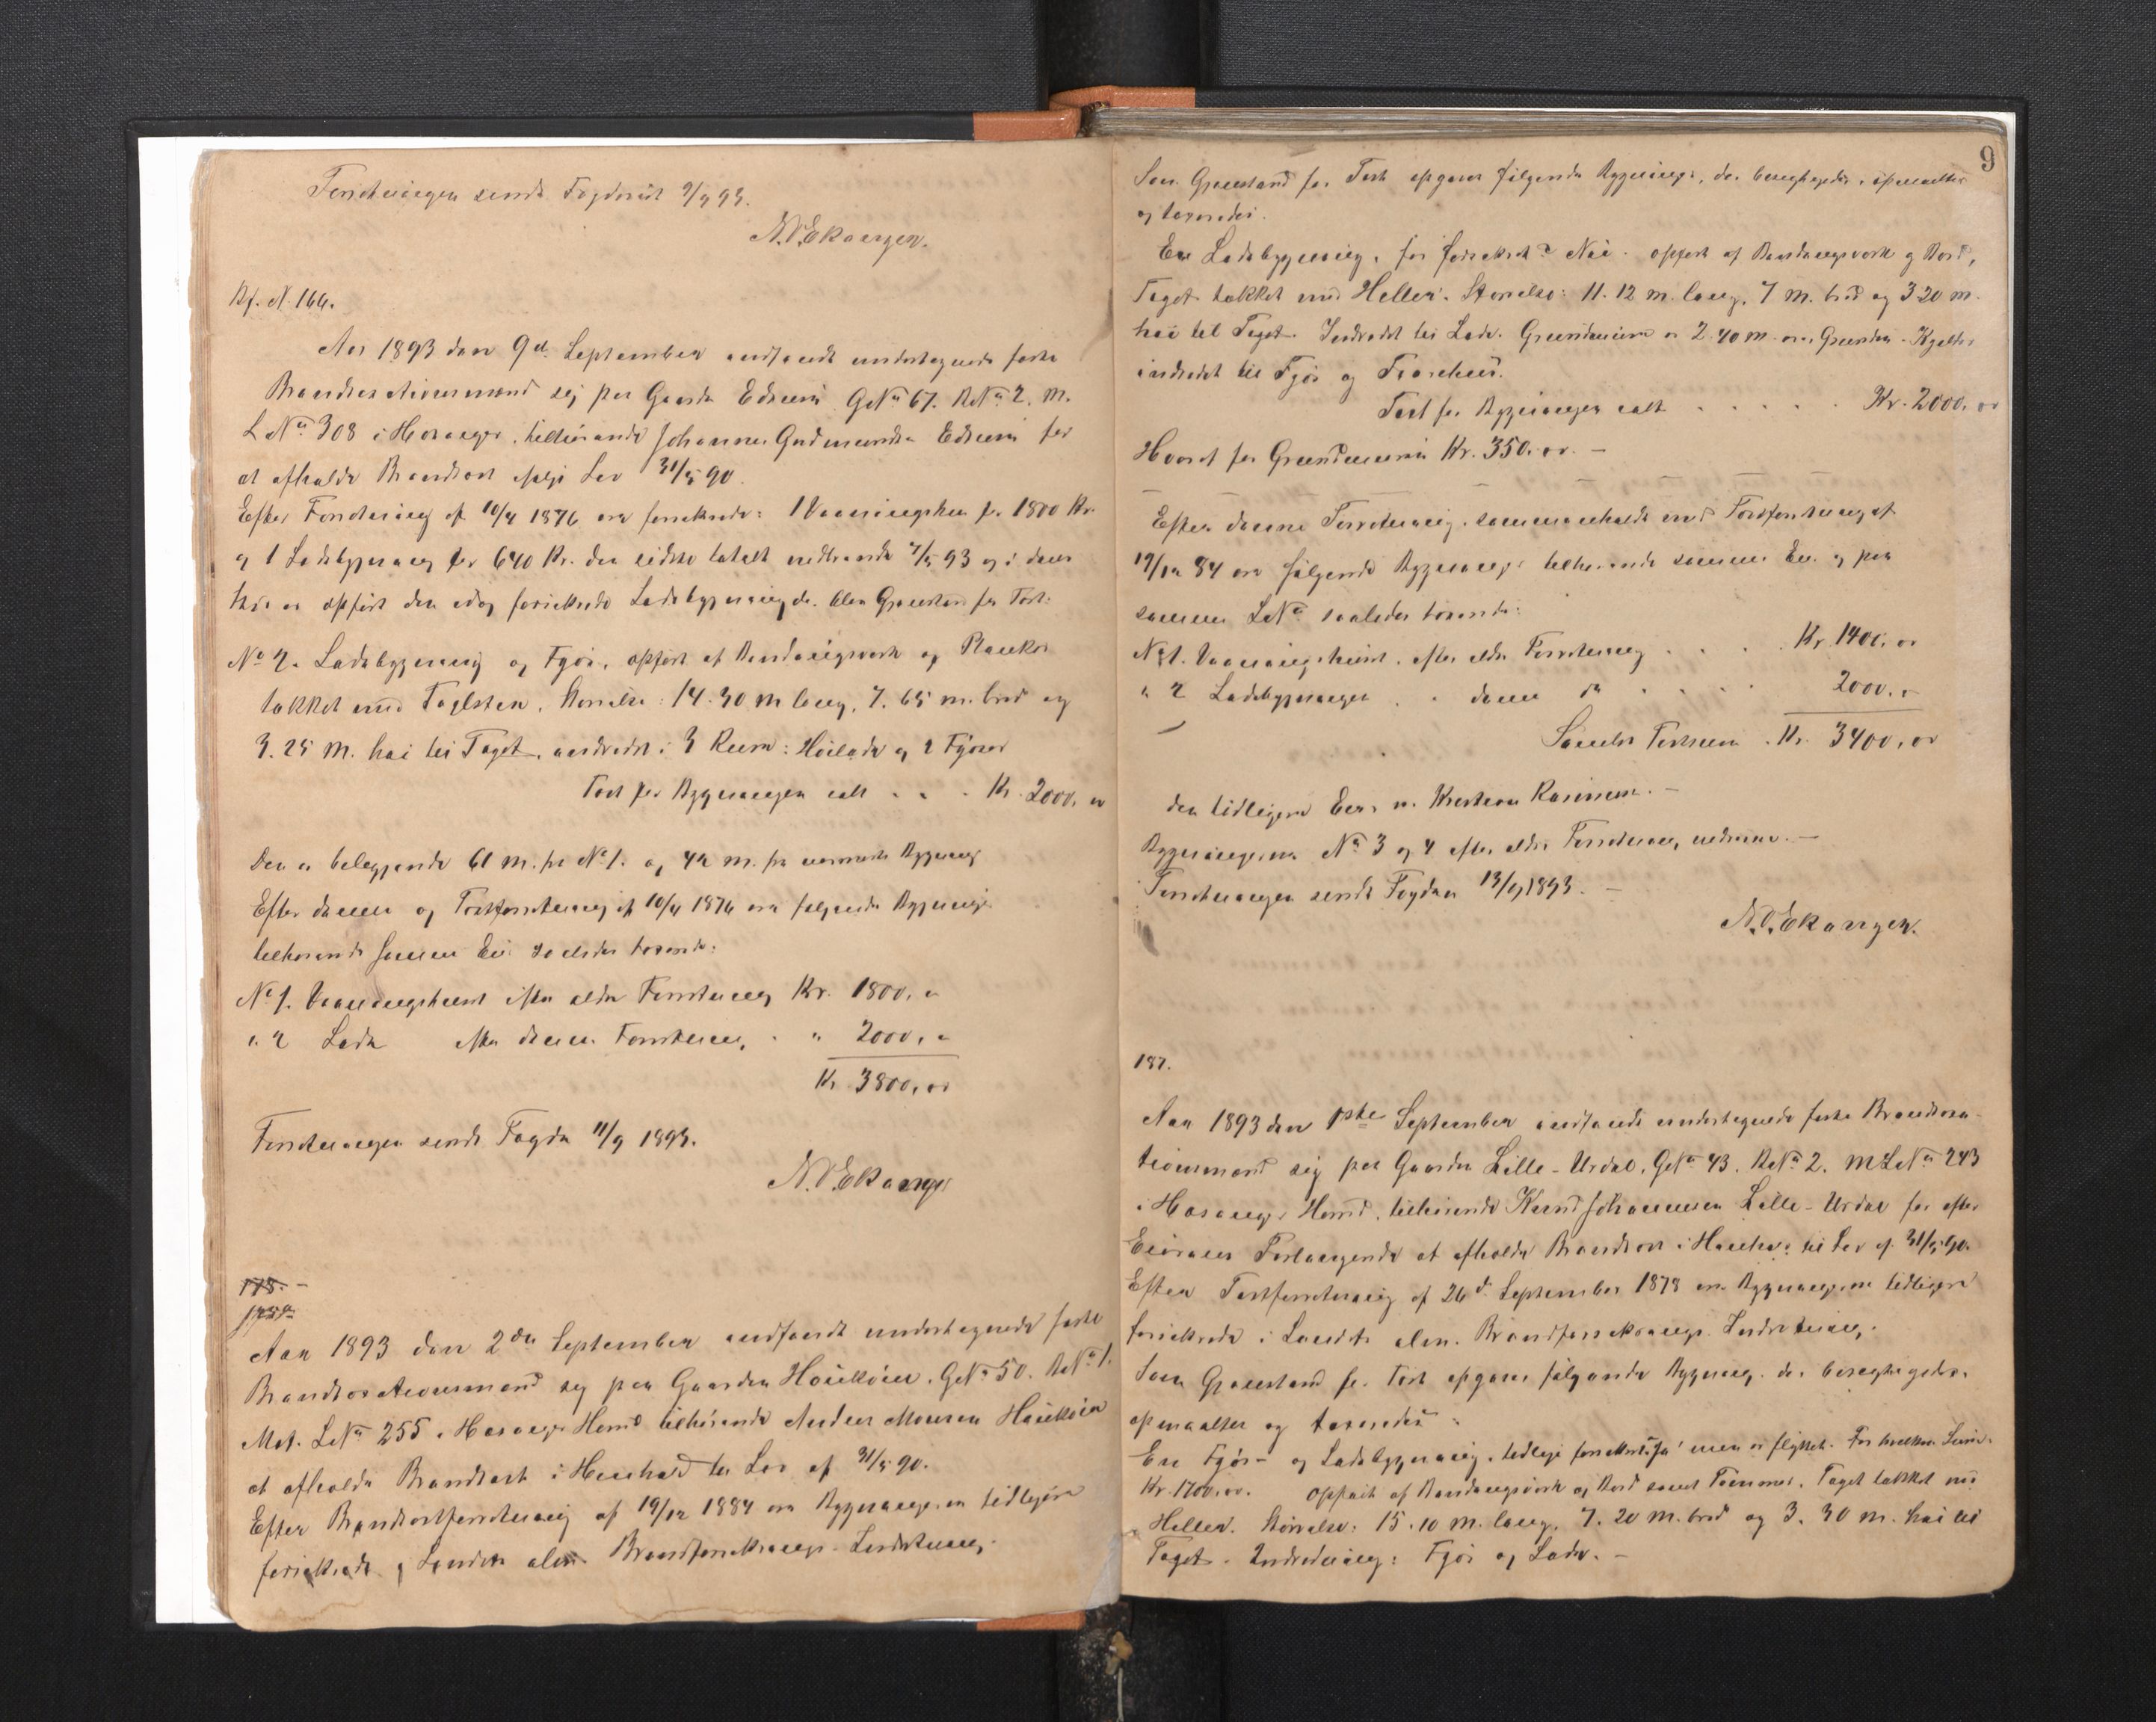 Forretningen sendt Fogden 9/9 93.
N.O. Ekanger.
Bf. N. 166.
Aar 1893 den 9de September indfandt undertegnede faste
Brandtaxationsmand sig paa Gaarden Gno 67. Bno 2. M.
L No 308 i Hosanger, tilhørende Johannes Gudmundsen for
at afholde Brandtaxt ifølge Lov 31/5 90.
Efter Forretning af 10/4 1876 ere forsikrede: 1 Vaaningshus for 1800 Kr.
og 1 Ladebygning for 640 Kr. den sidste totalt nedbrændt 93 og i dens
Sted er opført den idag forsikrede Ladebygning der blev Gjenstand for Taxt:
No 2. Ladebygning og Fjøs, opført af Bindingsværk og Planker
takket med Taglsten. Størrelse: 14.30 m lang, 7.65 m. bred og
3.25 M. høi til Taget, indredet i 3 Rum: Høilade og 2 Fjøser
Taxt for Bygningen ialt . . . Kr. 2000, 00
Den er beliggende 61 m. fra No 1. og 42 m. fra nærmeste Bygning
Efter denne og Taxtforretning af 10/4 1876 ere følgende Bygninger
tilhørende samme Eier saaledes taxerede:
No 1. Vaaningshuset efter ældre Forretning Kr. 1800, "
" 2 Lade efter denne Forretning . " 2000, "
Kr. 3800, 00
Forretningen sendt Fogden 11/9 1893.
N.O. Ekanger
178. -
Aar 1893 den 2den September indfandt undertegnede faste
Brandtaxationsmand sig paa Gaarden Gno 50. Bno 1.
Mat. LNo 255 i Hosanger Herred tilhørende Anders Monsen
at afholde Brandtaxt i Henhold til Lov af 31/5 90.
Efter Brandtaxtforretning af 19/12 1884 ere Bygningerne tidligere
forsikrede i Landets alm. Brandforsikrings-Indretning.
9
Som Gjenstand for Taxt opgaves følgende Bygninger, der besigtigedes, opmaaltes
og taxeredes.
En Ladebygning, før forsikret? Nei. opført af Bindingsværk og Bord,
Taget takket med Heller. Størrelse: 11.12 m. lang, 7 m. bred og 3.20 m.
høi til Taget. Indredet til Lade. Grundmuren er 2.40 m. over Grunden. Kjelder
indredet til Fjøs og
Taxt for Bygningen ialt . . . . . Kr. 2000, 00
Hvoraf for Grundmuren Kr. 350, 00. -
Efter denne Forretning, sammenholdt med Taxtforretning af
19/12 84 ere følgende Bygninger tilhørende samme Eier og paa
samme LNo saaledes taxerede:
No 1. Vaaningshuset, efter ældre Forretning . . . . Kr. 1400, 00
" 2 Ladebygningen . " denne do . . . . 2000, "
Samlet Taxtsum . Kr. 3400, 00
Den tidligere Eier
Bygningerne No 3 og 4 efter ældre Forretning nedrevne. -
Forretningen sendt Fogden 13/9 1893. -
N.O. Ekanger.
187.
Aar 1893 den 1ste September indfandt undertegnede faste Brandtaxa-
tionsmand sig paa Gaarden Lille-Urdal, Gno 43. Bno 2. M LNo 243
i Hosanger Herred, tilhørende Knud Johannessen Lille-Urdal for efter
Eierens Forlangende at afholde Brandtaxt i Henhold til Lov af 31/5 90.
Efter Taxtforretning af 26de September 1878 ere Bygningerne tidligere
forsikrede i Landets alm. Brandforsikrings Indretning.
Som Gjenstand for Taxt opgaves følgende Bygning, der besigtigedes,
opmaaltes og taxeredes:
En Fjøs- og Ladebygning, tidlige forsikret? Ja! men er flyttet. For hvilken Sum:
Kr. 1700, 00. opført af Bindingsværk og Bord samt Tømmer. Taget takket med
Heller. Størrelse: 15.10 m. lang, 7.20 m. bred og 3.30 m. høi til
Taget. Indredning: Fjøs og Lade. -